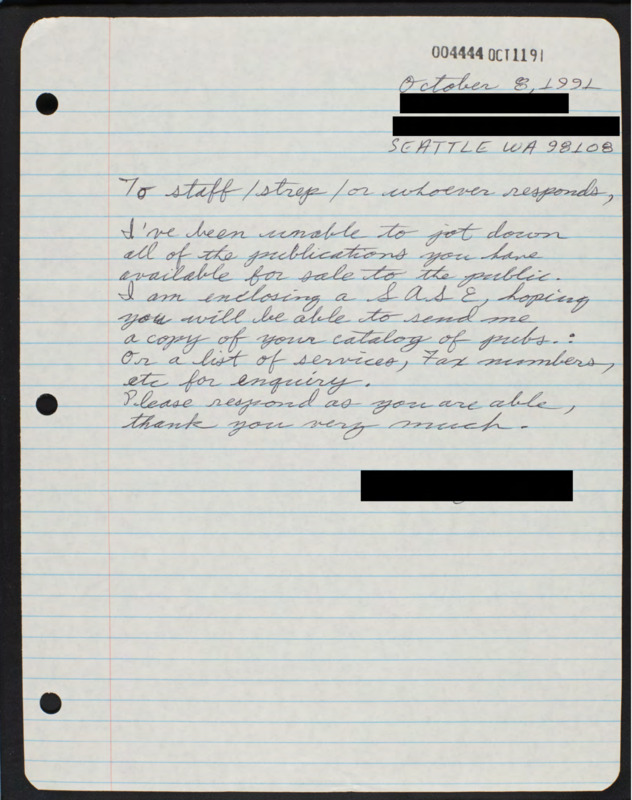 004444 OCT1191
October 8, 1991
SEATTLE WA 98108
To staff/strep/or whoever responds,
I've been unable to jot down
all of the publications you have
available for sale to the public.
I am enclosing a S A S E, hoping
you will be able to send me
a copy of your catalog of pubs.:
Or a list of services, Fax numbers,
etc for enquiry.
Please respond as you are able,
thank you very much.